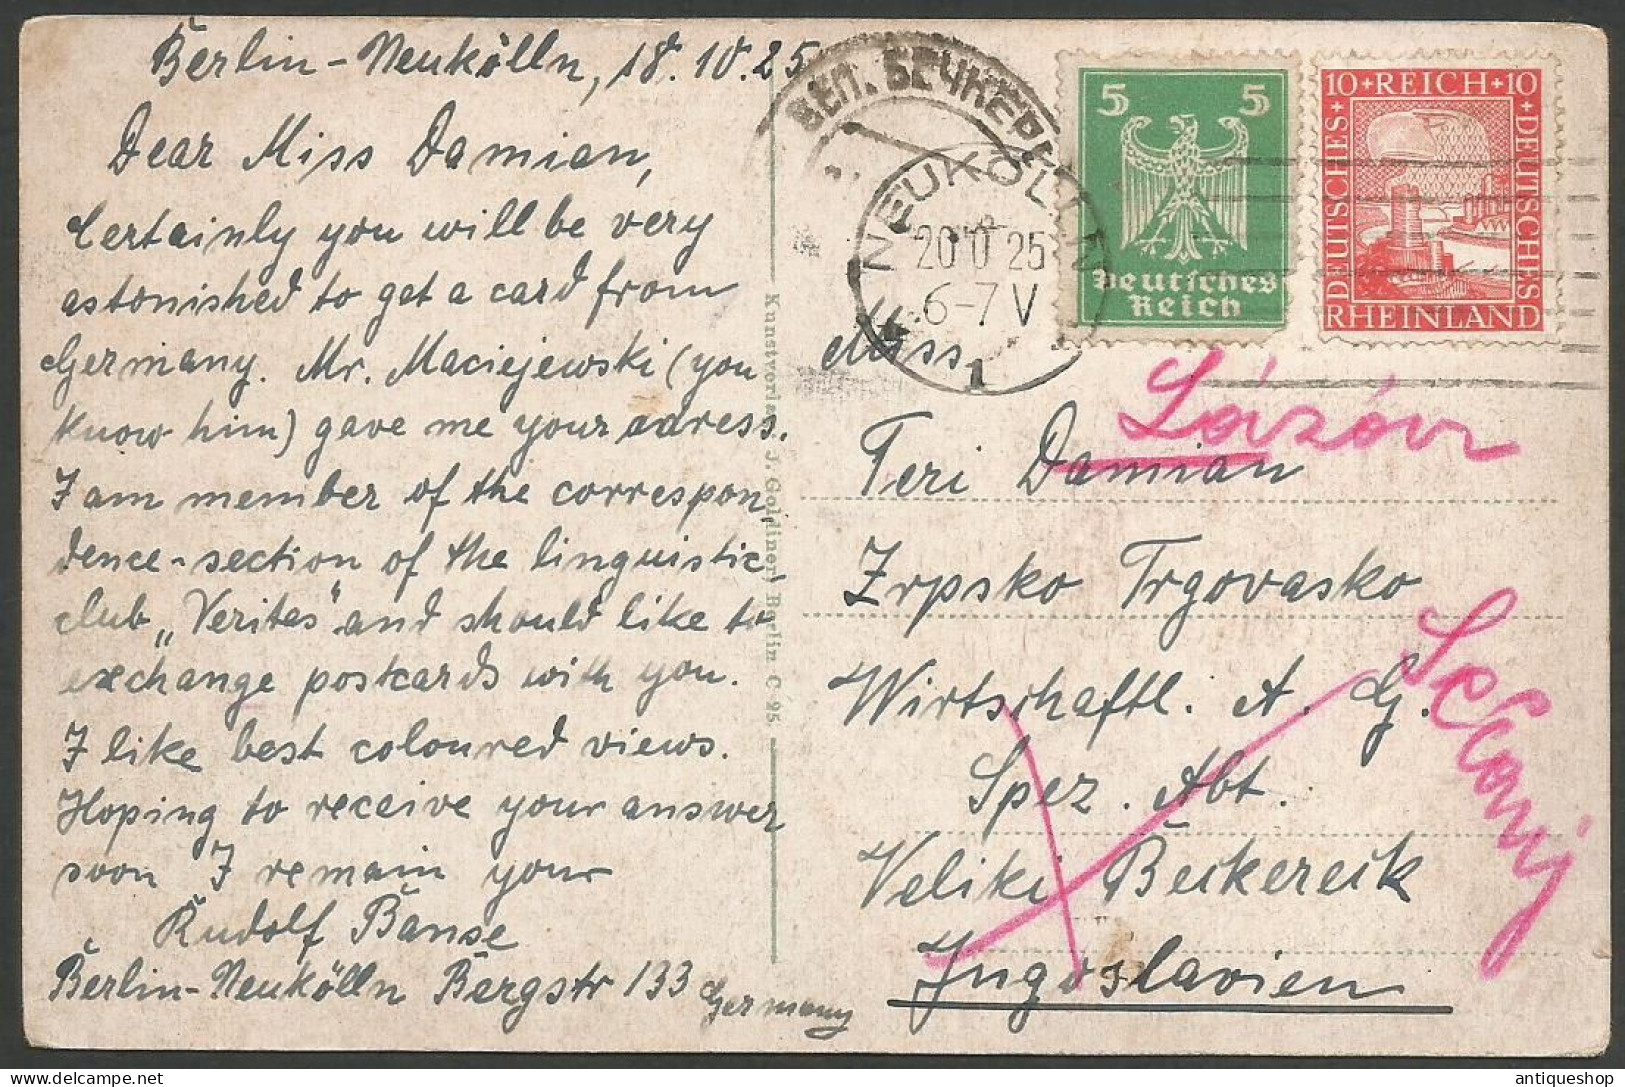 Berlin-Neukölln, 18.10.25
Dear Miss Damian,
Certainly you will be very
astonished to get a card from
Germany. Mr. Maciejewski (you
know him) gave me your adress.
I am member of the correspon-
dence-section of the linguistic-
club „Veritas" and should like to
exchange postcards with you.
I like best coloured views.
Hoping to receive your answer
soon I remain your
Rudolf Banse
Berlin-Neukölln Bergstr 133 Germany
Kunstverlag J. Goldiner, Berlin. C 25.
ВЕЛ. БЕЧКЕРЕК
NEUKÖLLN
20 10 25
6-7 V
1
5 5
Deutsches
Reich
10+REICH+10
DEUTSCHES
DEUTSCHES
RHEINLAND
Miss
Teri Damian
Zrpsko Trgovasko
Wirtschaftl. A. G.
Spez. Abt.
Veliki Beckereck
Jugoslavien
antiqueshop